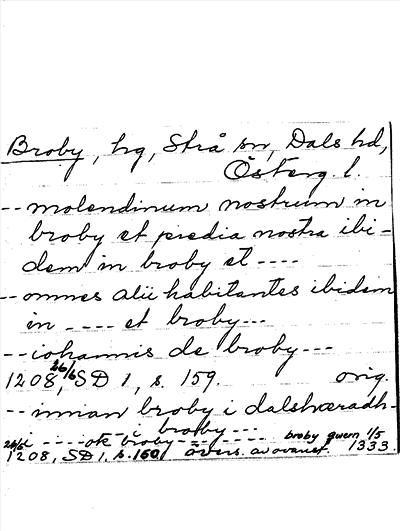 Broby, hg, Strå sn, Dals hd,
Österg. l.
-- molendinum nostrum in
broby et predia nostra ibi-
dem in broby et ----
-- omnes alii habitantes ibidem
in ---- et broby---
-- iohannis de broby ---
1208 26/6, SD 1, s. 159. orig.
-- innan broby i dalshæradh-
-- i broby---
---- ok broby ------- broby quern 1/5
1208, SD 1, s. 160, övers. av ovanst. 1333.